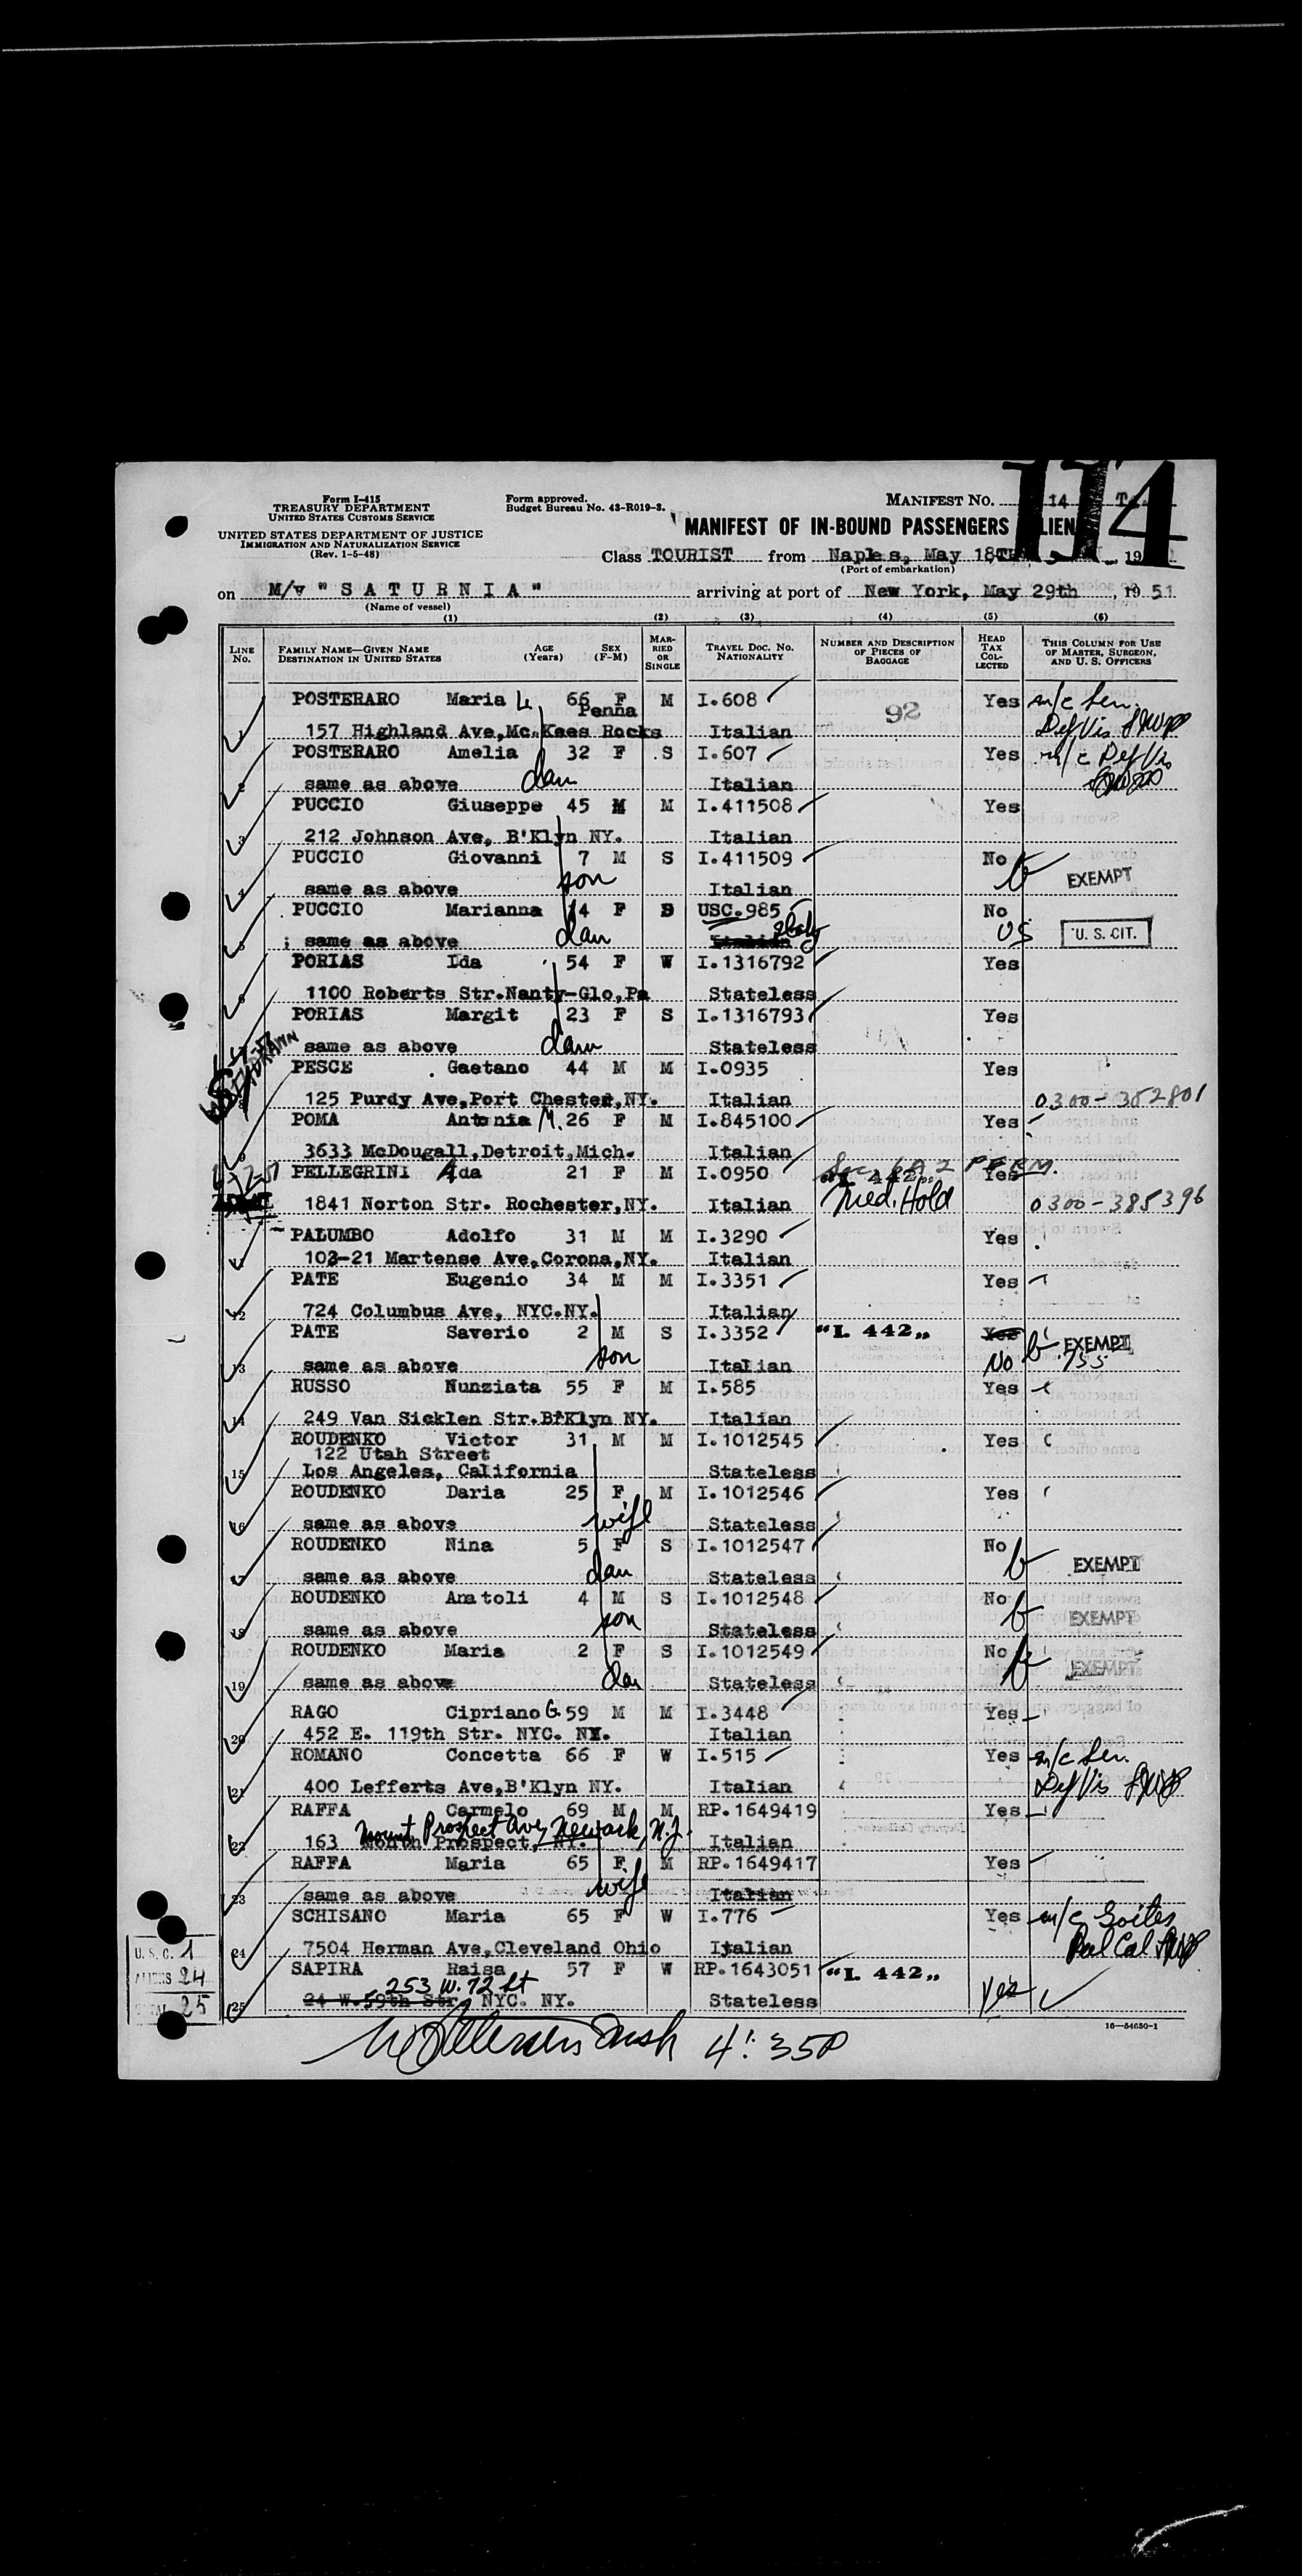 Form I-415
TREASURY DEPARTMENT
UNITED STATES CUSTOMS SERVICE
UNITED STATES DEPARTMENT OF JUSTICE
IMMIGRATION AND NATURALIZATION SERVICE
(Rev. 1-5-48)
Form approved.
Budget Bureau No. 43-R019-3.
MANIFEST NO. 14
114
MANIFEST OF IN-BOUND PASSENGERS
Class TOURIST from Naples, May 18TH, 19
(Port of embarkation)
on M/v "SATURNIA" arriving at port of New York, May 29th, 1951
(Name of vessel)
(1) (2) (3) (4) (5) (6)
LINE NO. FAMILY NAME—GIVEN NAME DESTINATION IN UNITED STATES AGE (Years) SEX (F-M) MARRIED OR SINGLE TRAVEL DOC. NO. NATIONALITY NUMBER AND DESCRIPTION OF PIECES OF BAGGAGE HEAD TAX COLLECTED THIS COLUMN FOR USE OF MASTER, SURGEON, AND U. S. OFFICERS
POSTERARO Maria 66 F M I.608 92 Yes m/c Sen.
1 157 Highland Ave,Mc.Kees Rocks Penna Italian Def Vis
POSTERARO Amelia 32 F S I.607 Yes m/c Def Vis
2 same as above dau Italian
PUCCIO Giuseppe 45 M M I.411508 Yes
3 212 Johnson Ave, B'Klyn NY. Italian
PUCCIO Giovanni 7 M S I.411509 No
4 same as above son Italian EXEMPT
PUCCIO Marianna 14 F S USC.985 No
5 same as above dau Italian Italy US U. S. CIT.
PORIAS Ida 54 F W I.1316792 Yes
6 1100 Roberts Str.Nanty-Glo,Pa Stateless
PORIAS Margit 23 F S I.1316793 Yes
same as above dau Stateless
PESCE Gaetano 44 M M I.0935 Yes
WITHDRAWN
8 125 Purdy Ave,Port Chester,NY. Italian 0300-352801
POMA Antonia M. 26 F M I.845100 Yes
9 3633 McDougall,Detroit,Mich. Italian
PELLEGRINI Ada 21 F M I.0950 "I. 442" Yes PERM.
1841 Norton Str. Rochester,NY. Italian Med. Hold 0300-385396
PALUMBO Adolfo 31 M M I.3290 Yes
103-21 Martense Ave,Corona,NY. Italian
PATE Eugenio 34 M M I.3351 Yes
12 724 Columbus Ave, NYC.NY. Italian
PATE Saverio 2 M S I.3352 "I. 442" Yes EXEMPT
13 same as above son Italian No 755
RUSSO Nunziata 55 F M I.585 Yes
14 249 Van Sicklen Str.B'Klyn NY. Italian
ROUDENKO Victor 31 M M I.1012545 Yes
122 Utah Street
15 Los Angeles, California Stateless
ROUDENKO Daria 25 F M I.1012546 Yes
16 same as above wife Stateless
ROUDENKO Nina 5 F S I.1012547 No
17 same as above dau Stateless EXEMPT
ROUDENKO Anatoli 4 M S I.1012548 No
18 same as above son Stateless EXEMPT
ROUDENKO Maria 2 F S I.1012549 No
19 same as above dau Stateless EXEMPT
RAGO Cipriano G. 59 M M I.3448 Yes
20 452 E. 119th Str. NYC. NY. Italian
ROMANO Concetta 66 F W I.515 Yes m/c Sen.
21 400 Lefferts Ave,B'Klyn NY. Italian Def Vis
RAFFA Carmelo 69 M M RP.1649419 Yes
Mount Prospect Ave, Newark, N.J.
22 163 North Prospect, NY. Italian
RAFFA Maria 65 F M RP.1649417 Yes
23 same as above wife Italian
SCHISANO Maria 65 F W I.776 Yes m/c Goiter
24 7504 Herman Ave,Cleveland Ohio Italian
SAPIRA Raisa 57 F W RP.1643051 "I. 442" Yes
253 W. 72 St
25 24 W.59th Str. NYC. NY. Stateless
U. S. C. 1
ALIENS 24
TOTAL 25
16—54650-1
4:35P